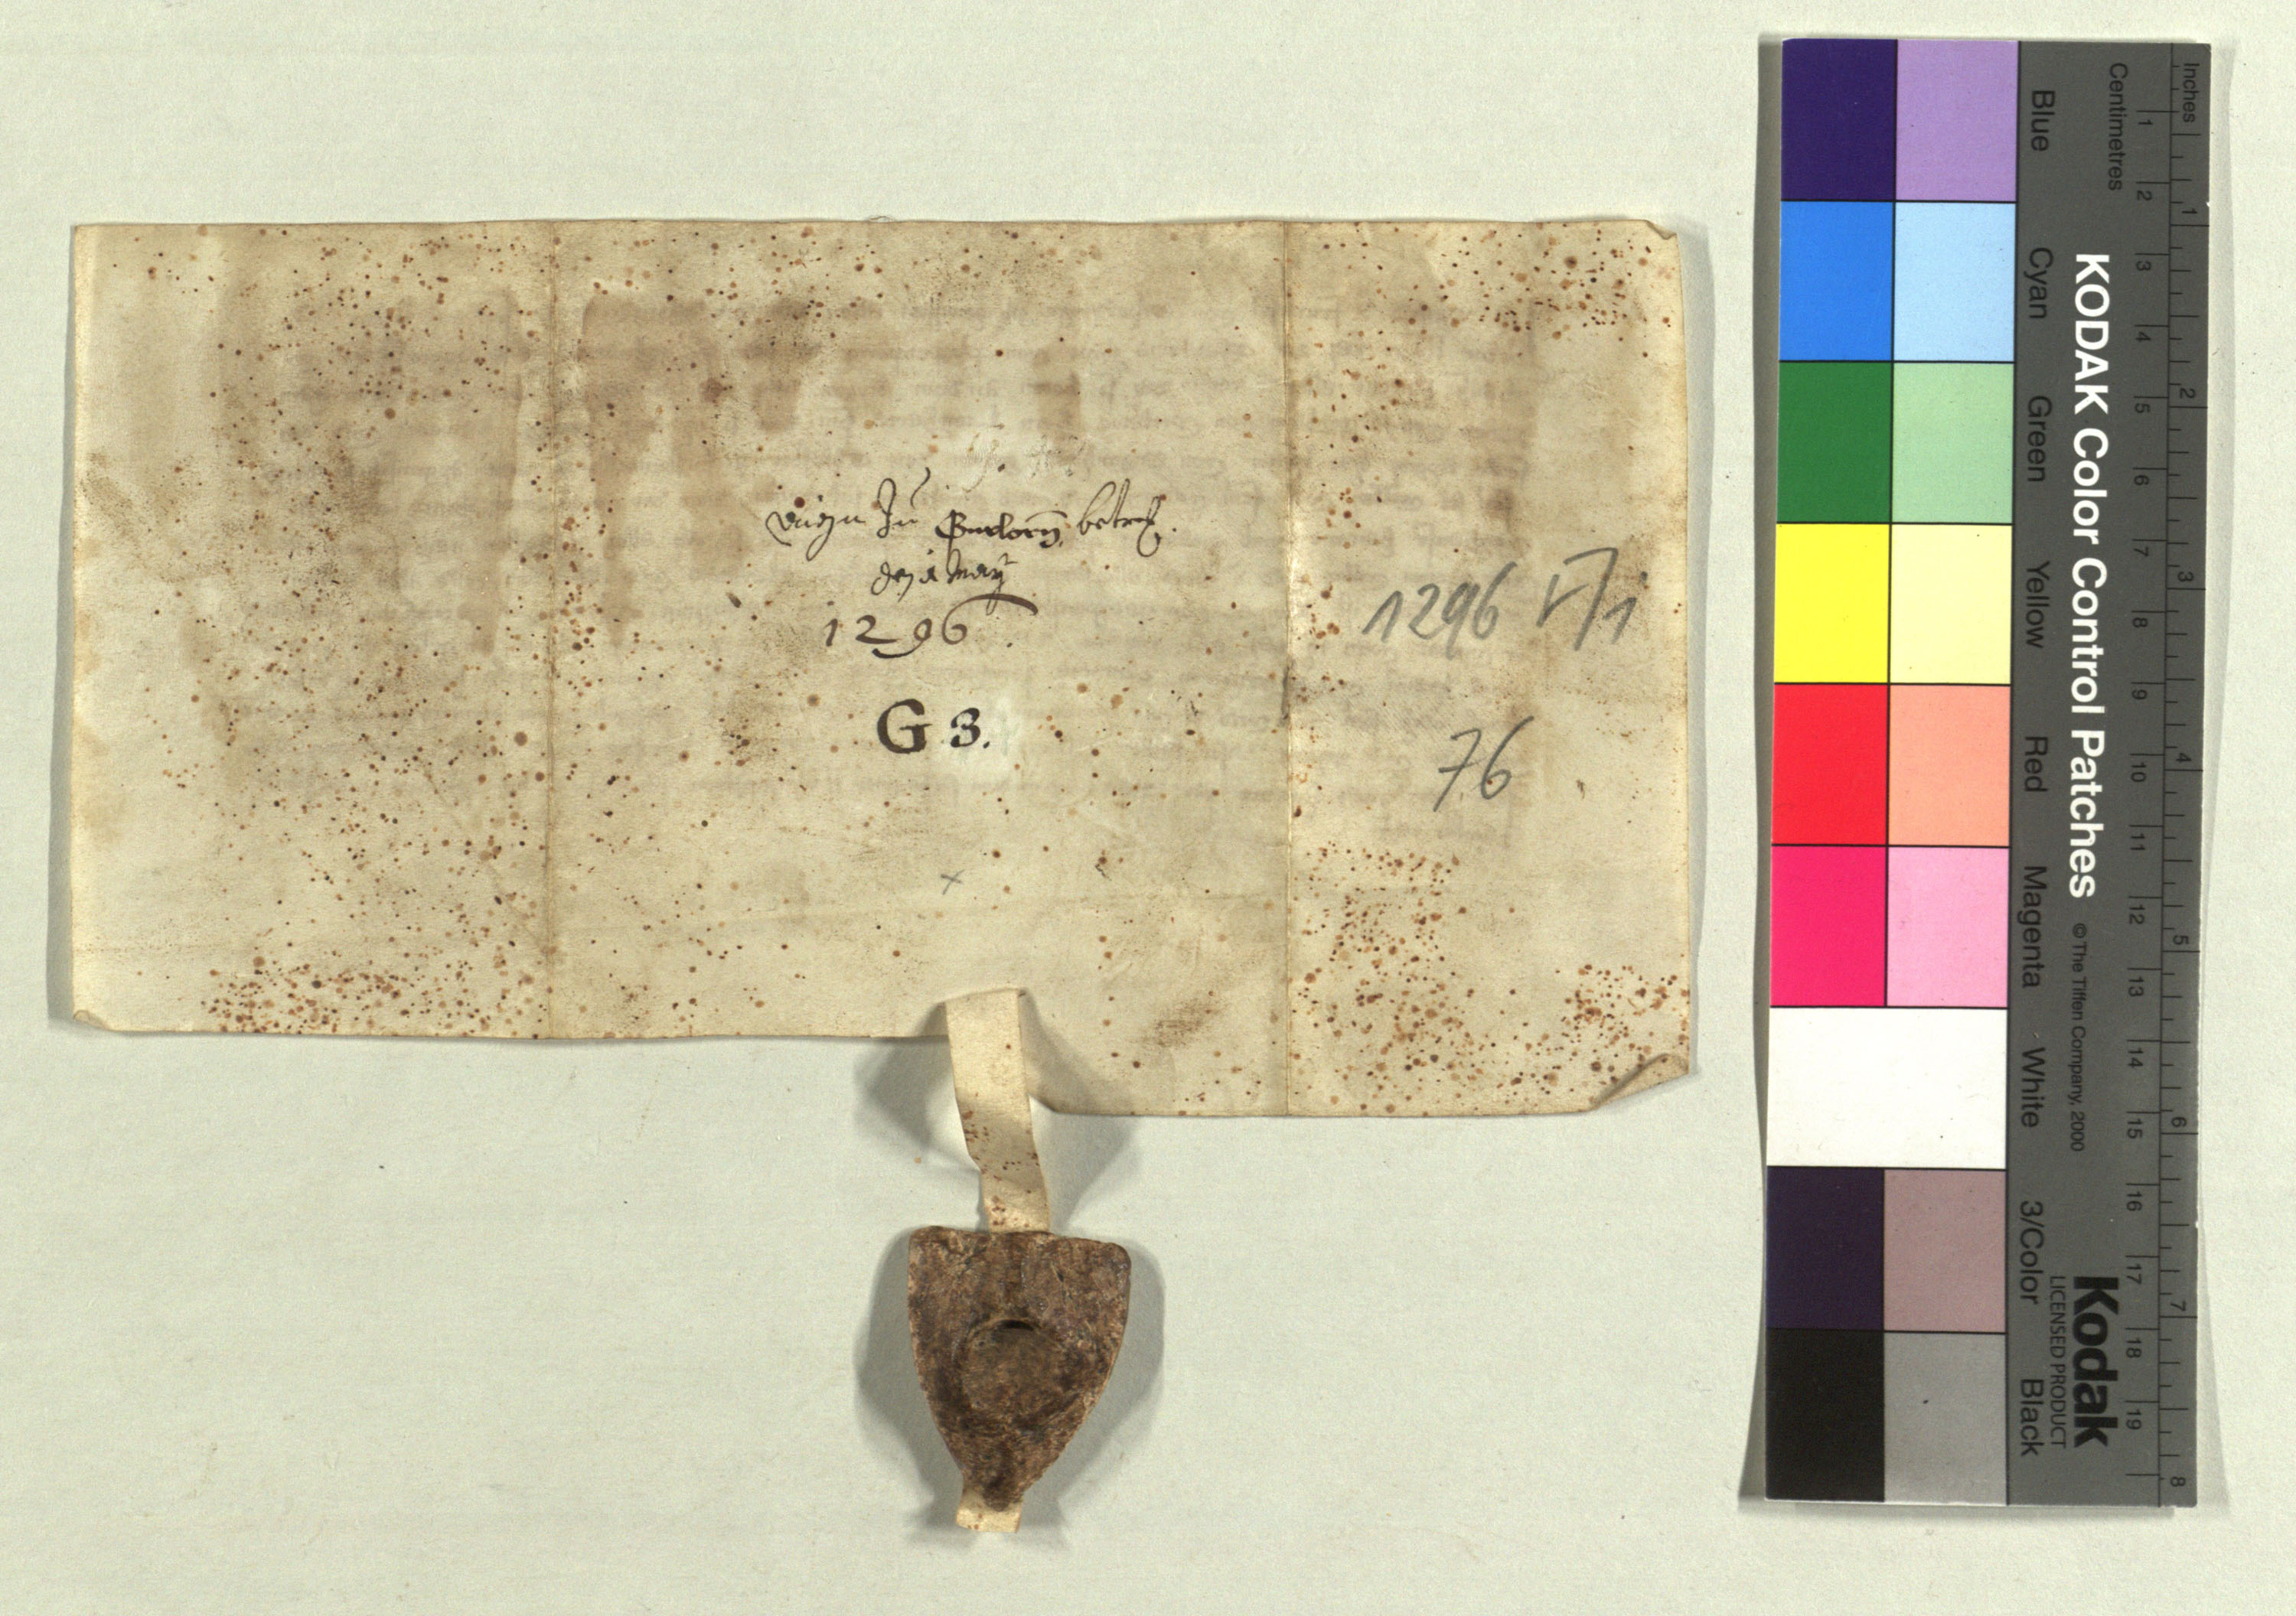 Zu Gundorn, betref.
den 1 May
1296.
G 3.
1296 V/1
76
x
Inches
Centimetres
1 2 3 4 5 6 7 8
1 2 3 4 5 6 7 8 9 10 11 12 13 14 15 16 17 18 19
KODAK Color Control Patches © The Tiffen Company, 2000
Kodak
LICENSED PRODUCT
Blue Cyan Green Yellow Red Magenta White 3/Color Black